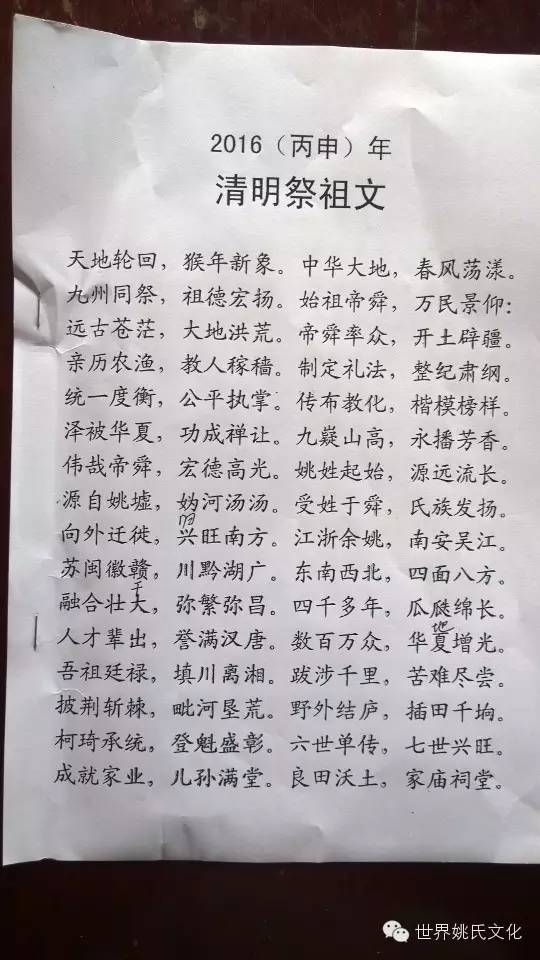 2016（丙申）年
清明祭祖文
天地轮回，猴年新象。中华大地，春风荡漾。
九州同祭，祖德宏扬。始祖帝舜，万民景仰：
远古苍茫，大地洪荒。帝舜率众，开土辟疆。
亲历农渔，教人稼穑。制定礼法，整纪肃纲。
统一度衡，公平执掌。传布教化，楷模榜样。
泽被华夏，功成禅让。九嶷山高，永播芳香。
伟哉帝舜，宏德高光。姚姓起始，源远流长。
源自姚墟，妫河汤汤。受姓于舜，氏族发扬。
向外迁徙，兴旺南方。江浙余姚，南安吴江。
苏闽徽赣，川黔湖广。东南西北，四面八方。
融合壮大，弥繁弥昌。四千多年，瓜瓞绵长。
人才辈出，誉满汉唐。数百万众，华夏增光。
吾祖廷禄，填川离湘。跋涉千里，苦难尽尝。
披荆斩棘，毗河垦荒。野外结庐，插田千垧。
柯琦承统，登魁盛彰。六世单传，七世兴旺。
成就家业，儿孙满堂。良田沃土，家庙祠堂。
世界姚氏文化